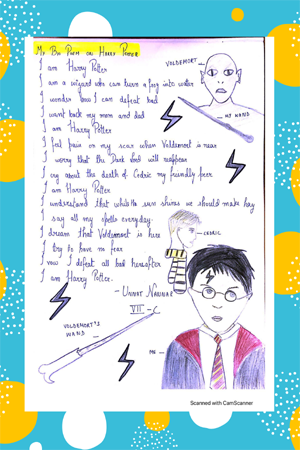 My Bio Poem on Harry Potter
I am Harry Potter
I am a wizard who can turn a frog into water
I wonder how I can defeat bad
I want back my mom and dad
I am Harry Potter
I feel pain on my scar when Voldemort is near
I worry that the Dark lord will reappear
I cry about the death of Cedric my friendly peer
I am Harry Potter
I understand that while the sun shines we should make hay
I say all my spells everyday
I dream that Voldemort is here
I try to have no fear
I vow I defeat all bad hereafter
I am Harry Potter.
- Unnat Navnar
VII - C
VOLDEMORT
MY WAND
CEDRIC
VOLDEMORT'S
WAND
ME
Scanned with CamScanner